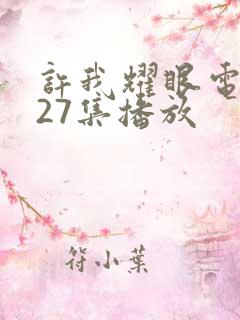 許我耀眼電
27集播放
符小葉